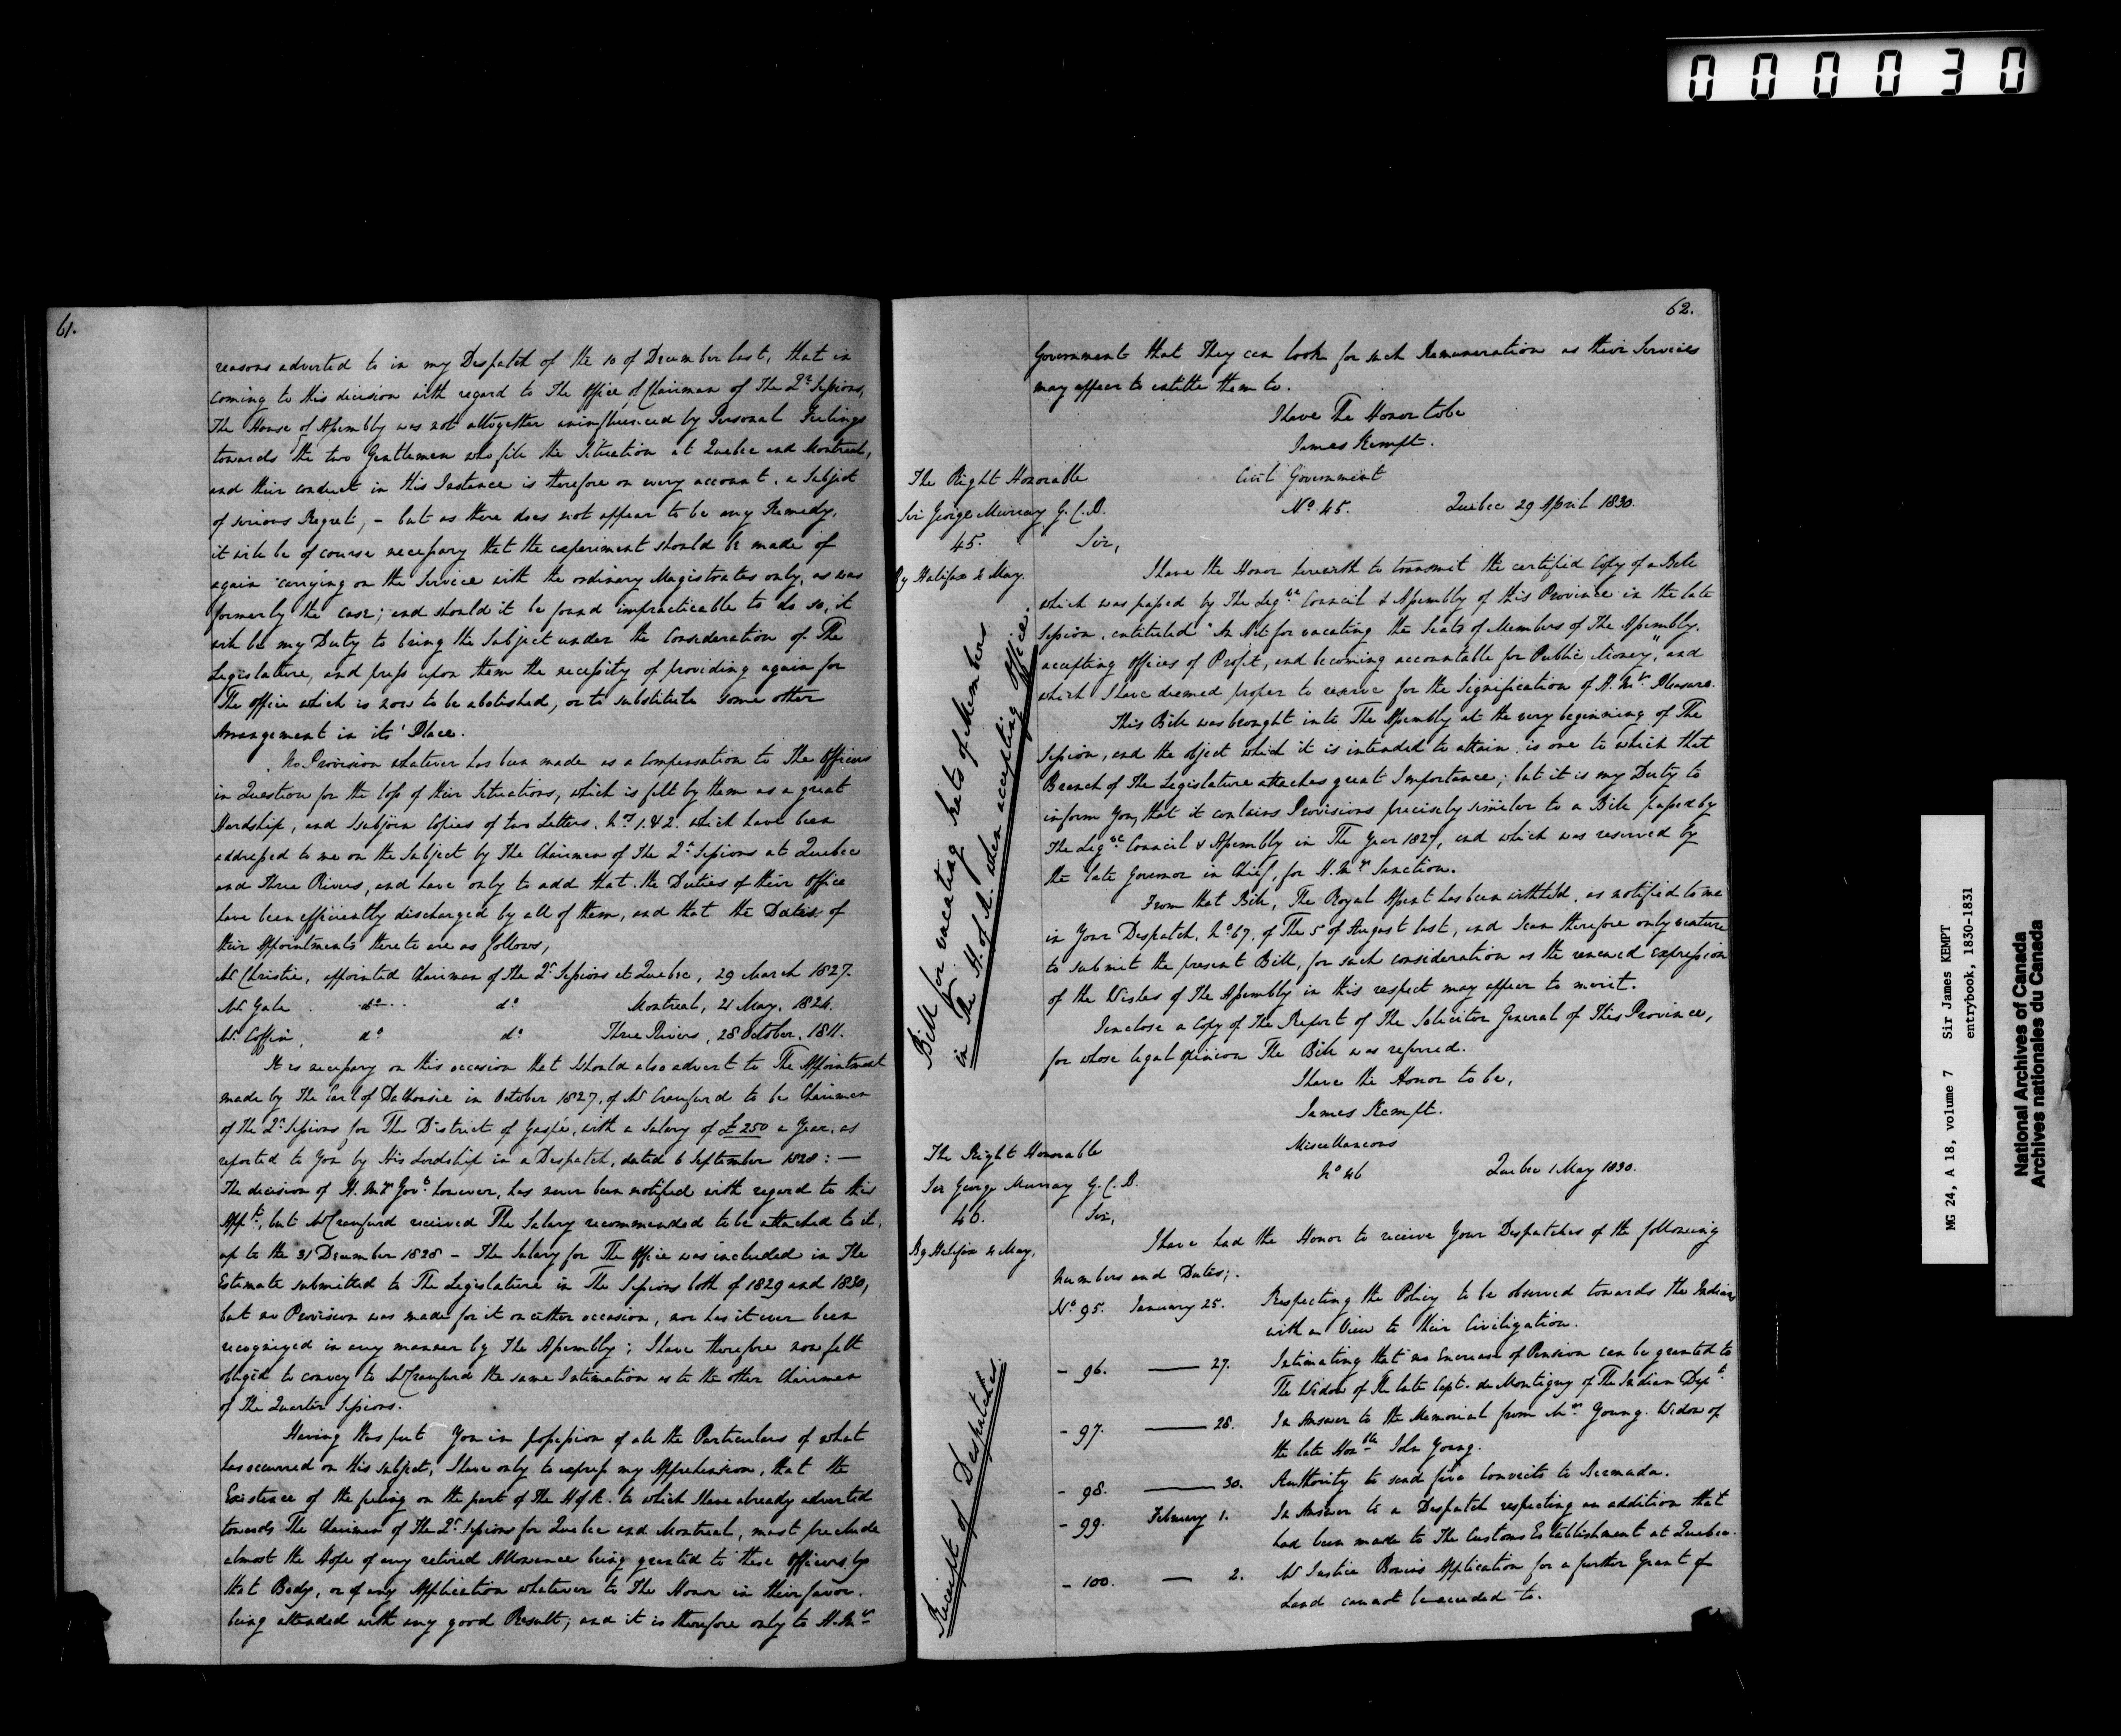 000030
61.
reasons adverted to in my Despatch of the 10 of December last, that in
coming to this decision with regard to The Office of Chairman of The Qr. Sessions,
The House of Assembly was not altogether uninfluenced by Personal Feelings
towards the two Gentlemen who fill the Situation at Quebec and Montreal,
and their conduct in this Instance is therefore on every account, a Subject
of serious Regret, – but as there does not appear to be any Remedy,
it will be of course necessary that the experiment should be made of
again carrying on the Service with the ordinary Magistrates only, as was
formerly the case; and should it be found impracticable to do so, it
will be my Duty to bring the Subject under the Consideration of The
Legislature, and press upon them the necessity of providing again for
The Office which is now to be abolished, or to substitute some other
Arrangement in its' Place.
No Provision whatever has been made as a Compensation to The Officers
in Question for the loss of their Situations, which is felt by them as a great
Hardship, and I subjoin Copies of two Letters, Nos. 1. & 2. which have been
addressed to me on the Subject by The Chairmen of The Qr. Sessions at Quebec
and Three Rivers, and have only to add that the Duties of their Office
have been efficiently discharged by all of them, and that the Dates of
their Appointments thereto are as follows,
Mr Christie, appointed Chairman of the Qr. Sessions at Quebec, 29 March 1827.
Mr Gale do. do. Montreal, 21 May, 1824.
Mr. Coffin, do. do. Three Rivers, 28 October, 1811.
It is necessary on this occasion that I should also advert to The Appointment
made by The Earl of Dalhousie in October 1827, of Mr Craufurd to be Chairman
of The Qr. Sessions for The District of Gaspé, with a Salary of £250 a Year, as
reported to You by His Lordship in a Despatch, dated 6 September 1828: –
The decision of H. Mys. Govt. however, has never been notified with regard to this
Appt., but Mr Craufurd received The Salary recommended to be attached to it,
up to the 31 December 1828 – The Salary for The Office was included in The
Estimate submitted to The Legislature in The Sessions both of 1829 and 1830,
but no Provision was made for it on either occasion, nor has it ever been
recognized in any manner by The Assembly; I have therefore now felt
obliged to convey to Mr Craufurd the same Intimation as to the other Chairmen
of The Quarter Sessions.
Having thus put You in possession of all the Particulars of what
has occurred on this subject, I have only to express my Apprehension, that the
Existence of the feeling on the part of The H of A. to which I have already adverted
towards The Chairmen of The Qr. Sessions for Quebec and Montreal, must preclude
almost the Hope of any retired Allowance being granted to these Officers by
that Body, or of any Application whatever to The House in their favor.
being attended with any good Result; and it is therefore only to H. Mys.
62.
Government that They can look for such Remuneration as their Services
may appear to entitle them to.
I have The Honor to be
James Kempt.
The Right Honorable
Sir George Murray G.C.B.
45.
By Halifax 4 May.
Civil Government
No. 45. Quebec 29 April 1830.
Sir,
I have the Honor herewith to transmit the certified Copy of a Bill
which was passed by The Legve. Council & Assembly of this Province in the late
Session, entituled "An Act for vacating the Seats of Members of The Assembly,
accepting Offices of Profit, and becoming accountable for Public Money", and
which I have deemed proper to reserve for the Signification of H. Mys. Pleasure.
Bill for vacating Seats of Members
in The H. of A. when accepting Office.
This Bill was brought into The Assembly at the very beginning of The
Session, and the object which it is intended to attain, is one to which that
Branch of The Legislature attaches great Importance; but it is my Duty to
inform You, that it contains Provisions precisely similar to a Bill passed by
The Legve. Council & Assembly in The Year 1827, and which was reserved by
the late Governor in Chief, for H. Mys. Sanction.
From that Bill, The Royal Assent has been withheld, as notified to me
in Your Despatch, No. 67, of The 5 of August last, and I can therefore only venture
to submit the present Bill, for such consideration as the renewed expression
of the Wishes of The Assembly in this respect may appear to merit.
I enclose a Copy of The Report of The Solicitor General of This Province,
for whose legal opinion The Bill was referred.
I have the Honor to be,
James Kempt.
The Right Honorable
Sir George Murray G.C.B.
46.
By Halifax 4 May,
Miscellaneous
No 46 Quebec 1 May 1830.
Sir,
I have had the Honor to receive Your Despatches of the following
Numbers and Dates;
Receipt of Despatches.
No. 95. January 25. Respecting the Policy to be observed towards the Indians
with a View to their Civilization.
– 96. — 27. Intimating that no Encrease of Pension can be granted to
The Widow of The late Capt. de Montigny of The Indian Dept.
– 97. — 28. In Answer to the Memorial from Mrs. Young, Widow of
the late Honble John Young.
– 98. — 30. Authority to send five Convicts to Bermuda.
– 99. February 1. In Answer to a Despatch respecting an addition that
had been made to The Customs Establishment at Quebec.
– 100. — 2. Mr Justice Bowen's Application for a further Grant of
Land cannot be acceded to.
MG 24, A 18, volume 7 Sir James KEMPT
entrybook, 1830-1831
National Archives of Canada
Archives nationales du Canada